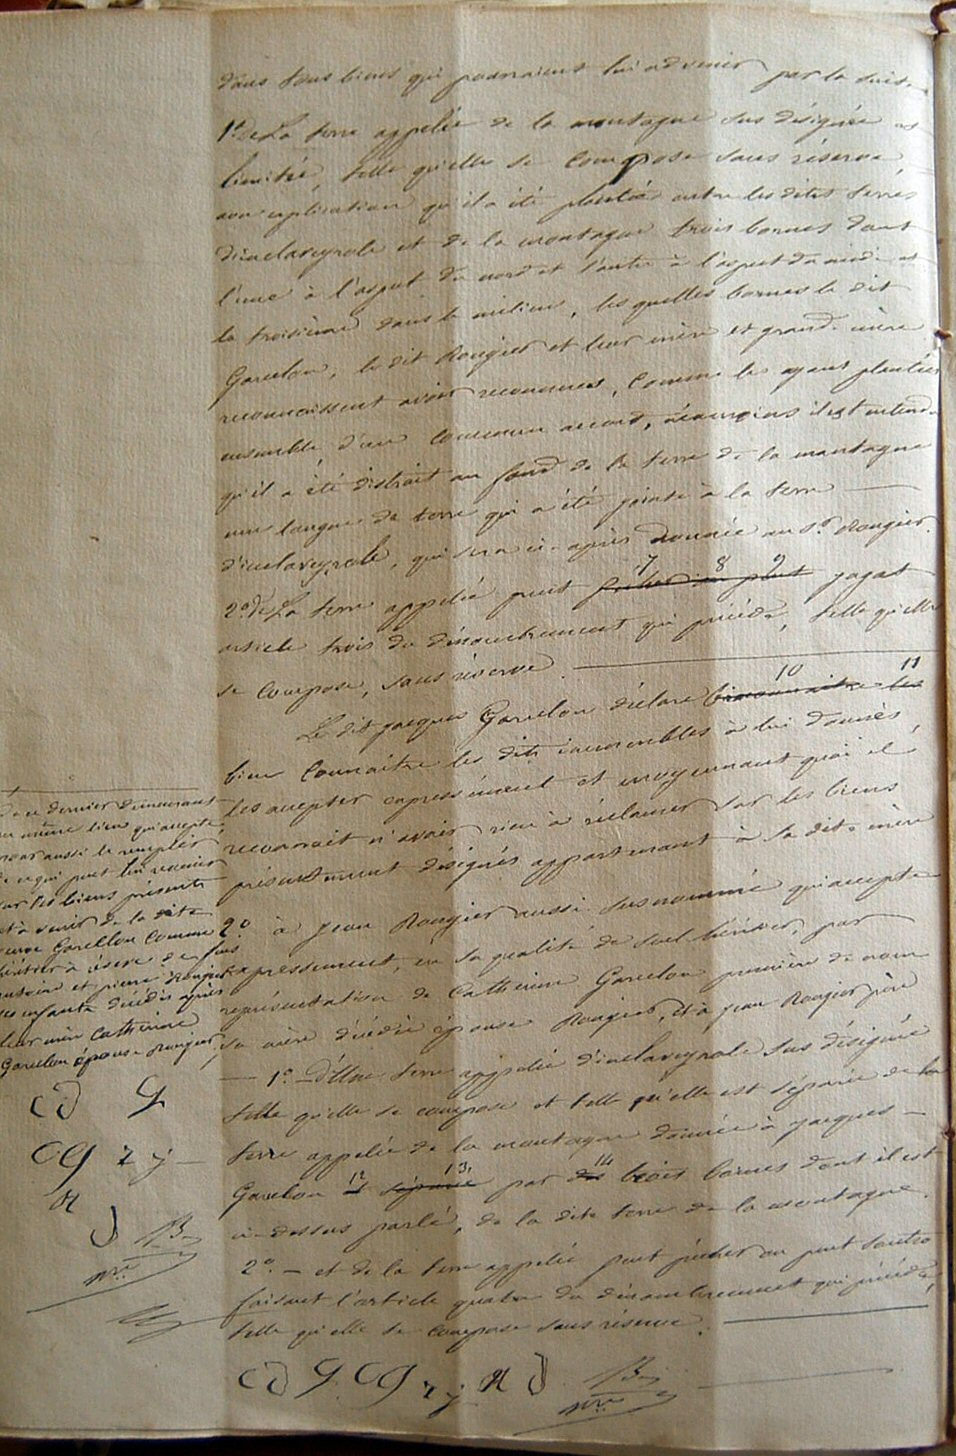 dans tous biens qui pourraient lui advenir par la suite.
1º de La terre appelée de la montagne sus désignée et
limitée, telle qu'elle se compose sans réserve
avec explication qu'il a été plantée entre les dites terres
d'inclaveyrole et de la montagne trois bornes dont
l'une à l'aspect du nord et l'autre à l'aspect du midi et
la troisième dans le milieu, les quelles bornes le dit
Garellon, le dit Rougier et leur mère et grand-mère
reconnaissent avoir reconnues, comme les ayant plantées
ensemble d'un commun accord, néanmoins il est entendu
qu'il a été distrait au fond de la terre de la montagne
une langue de terre qui a été jointe à la terre
d'inclaveyrole, qui sera ci-après donnée au Sr. Rougier.
2º de La terre appelée peut 7 8 9 jagat
article trois du dénombrement qui précède, telle qu'elle
se compose, sans réserve.
10 11
Le dit jacques Garellon déclare les
bien connaître les dits immeubles à lui donnés,
les accepter expressément et moyennant quoi il
reconnait n'avoir rien à réclamer sur les biens
présentement désignés appartenant à sa dite mère
2º à jean Rougier aussi susnommé qui accepte
expressement, en sa qualité de seul héritier, par
représentation de Catherine Garellon première de nom
sa mère décédée épouse Rougier, et à jean Rougier père
1º D'Une terre appelée d'inclaveyrole sus désignée
telle qu'elle se compose et telle qu'elle est séparée de la
terre appelée de la montagne donnée à jacques
Garellon 12 et 13 séparée par 14 des trois bornes dont il est
ci-dessus parlé, de la dite terre de la montagne.
2º et de la terre appelée peut ou peut
faisant l'article quatre du dénombrement qui précède,
telle qu'elle se compose sans réserve.
cd G CG r j R d B
nre
ce dernier demeurant
au même lieu qui accepte
pour aussi le remplir
de ce qui peut lui revenir
sur les biens présents
et à venir de la dite
veuve Garellon comme
héritier à réserve de
antoine et pierre Rougier
ses enfants décédés après
leur mère Catherine
Garellon épouse Rougier
cd G
CG r j
R
d B
nre